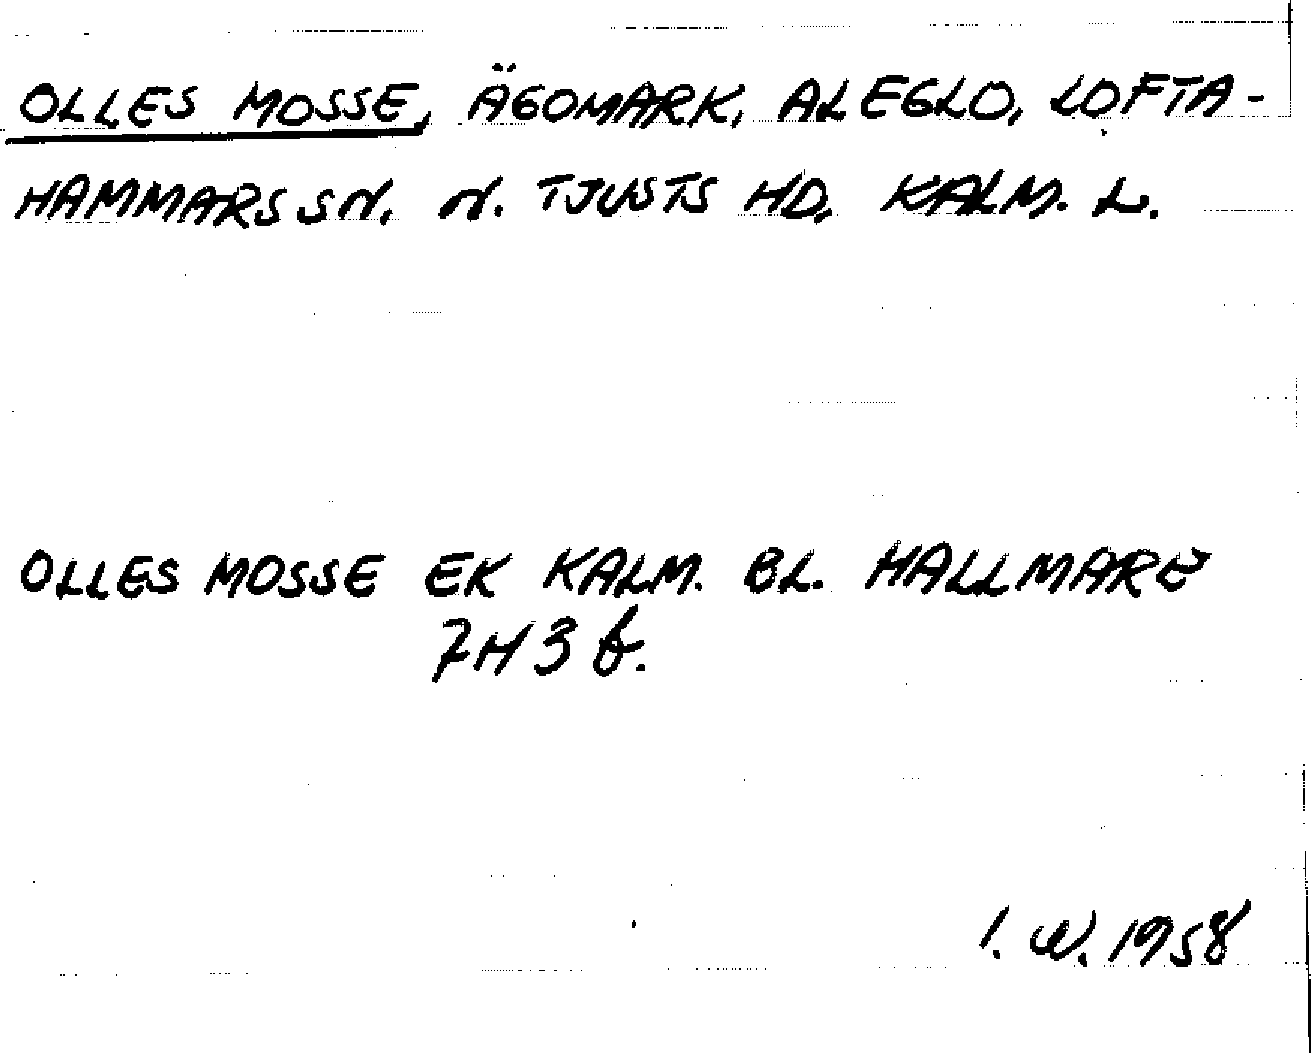 OLLES MOSSE, ÄGOMARK, ALEGLO, LOFTA-
HAMMARS SN. N. TJUSTS HD, KALM. L.
OLLES MOSSE EK KALM. BL. HALLMARE
7H 3 b.
I. W. 1958